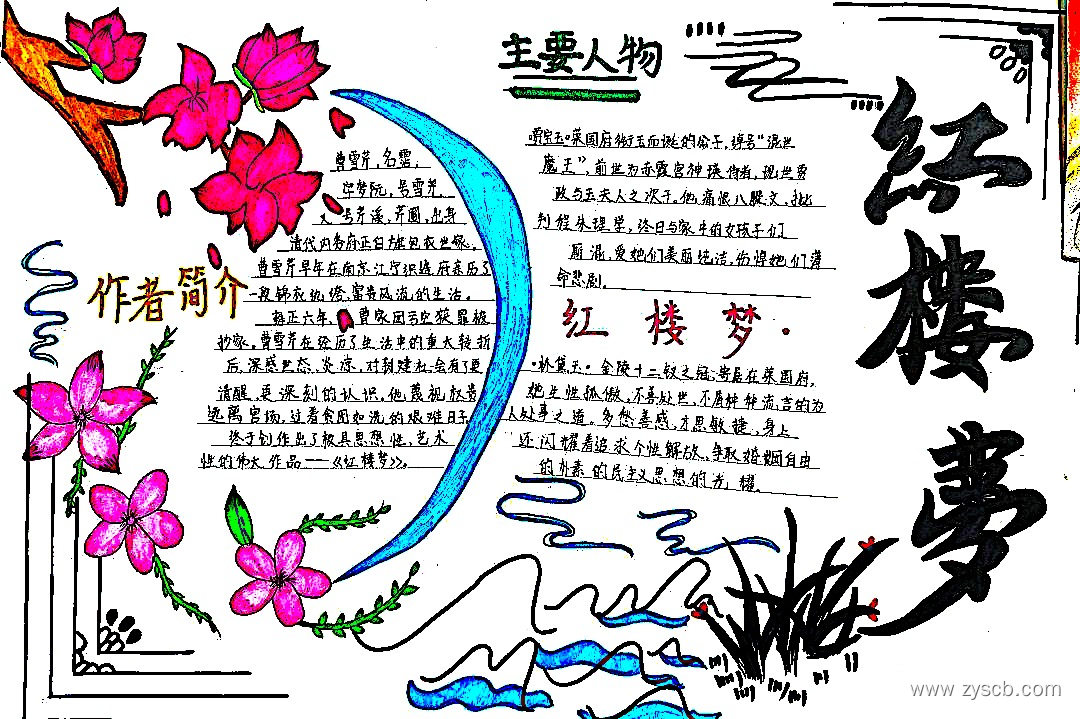 作者简介
曹雪芹,名霑,
字梦阮,号雪芹,
又号芹溪、芹圃,出身
清代内务府正白旗包衣世家,
曹雪芹早年在南京江宁织造府亲历了
一段锦衣纨绔、富贵风流的生活。
雍正六年,曹家因亏空获罪被
抄家。曹雪芹在经历了生活中的重大转折
后,深感世态炎凉,对封建社会有了更
清醒、更深刻的认识,他蔑视权贵
远离官场,过着贫困如洗的艰难日子
终于创作出了极具思想性、艺术
性的伟大作品——《红楼梦》。
主要人物
贾宝玉。荣国府衔玉而诞的公子,绰号“混世
魔王”,前世为赤霞宫神瑛侍者,现世贾
政与王夫人之次子。他痛恨八股文,批
判程朱理学,终日与家中的女孩子们
厮混,爱她们美丽纯洁,伤悼她们薄
命悲剧。
红楼梦.
·林黛玉。金陵十二钗之冠,寄居在荣国府,
她生性孤傲,不善处世,不屑
人处事之道。多愁善感,才思敏捷,身上
还闪耀着追求个性解放、争取婚姻自由
的朴素的民主思想的光耀。
红楼梦
www.zyscb.com